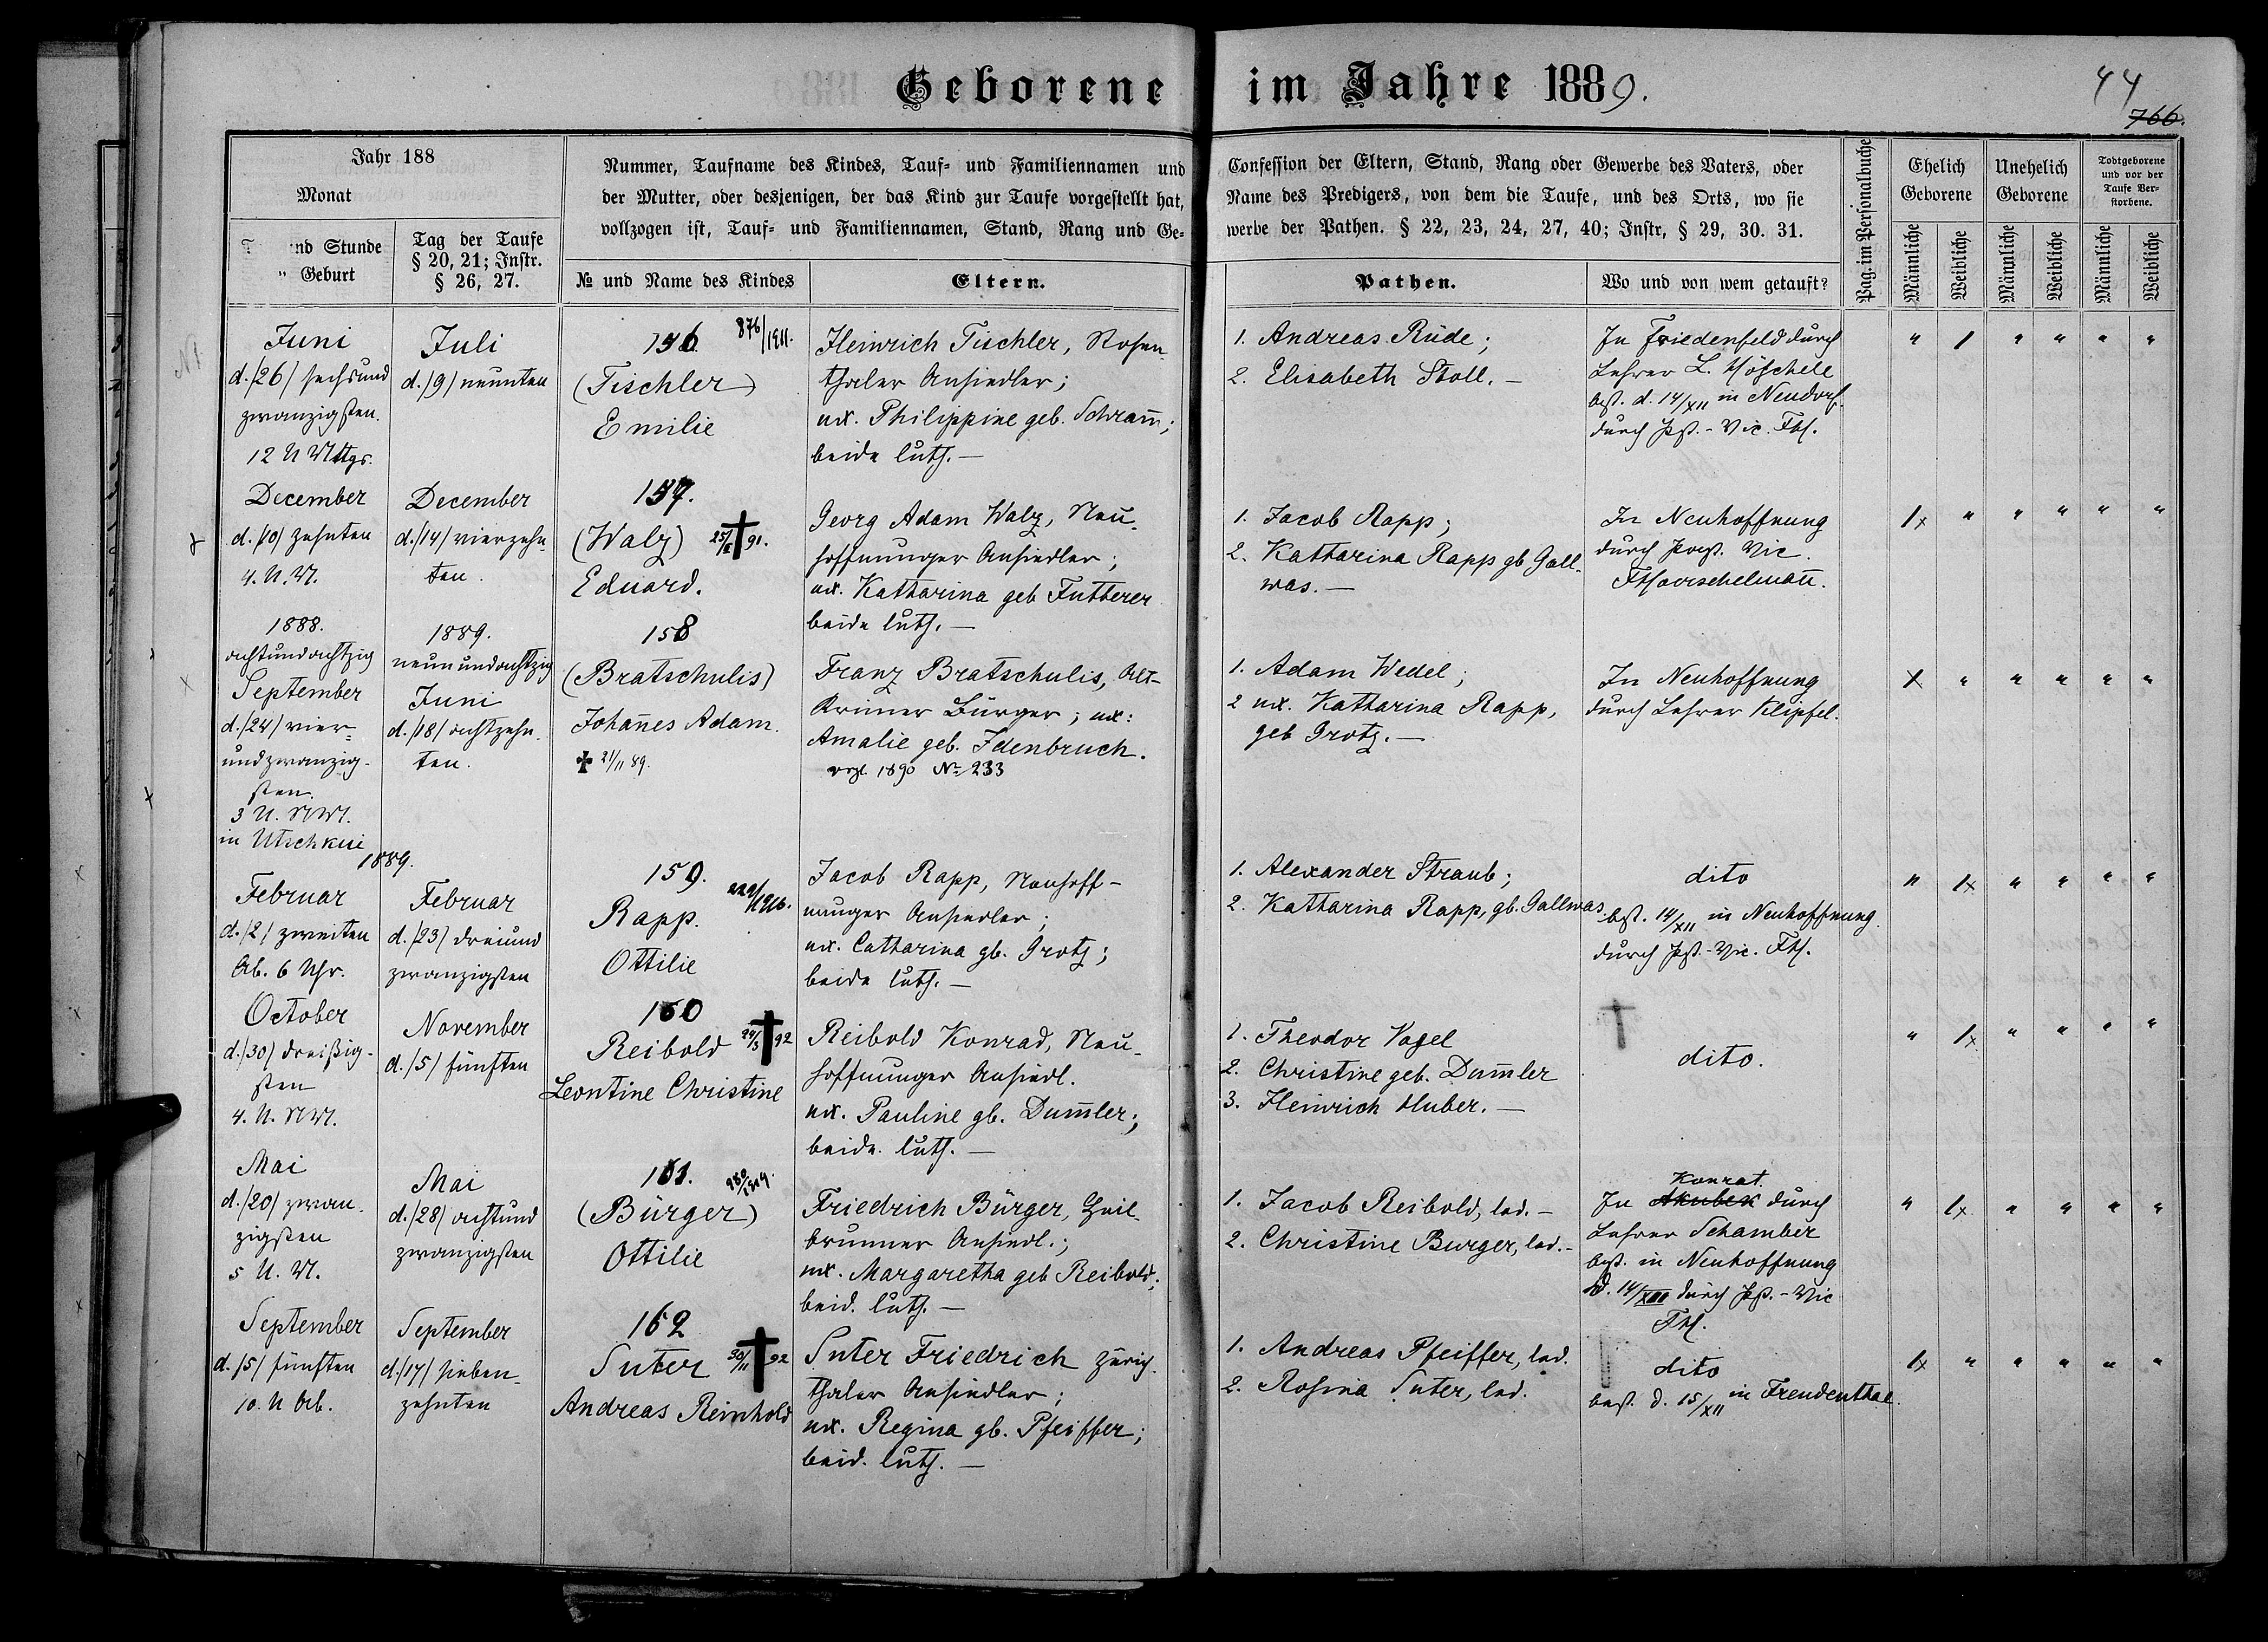 Geborene im Jahre 1889.
44
766.
Jahr 188
Monat
nd Stunde
" Geburt
Tag der Taufe
§ 20, 21; Instr.
§ 26, 27.
Nummer, Taufname des Kindes, Tauf= und Familiennamen und
der Mutter, oder desjenigen, der das Kind zur Taufe vorgestellt hat,
vollzogen ist, Tauf= und Familiennamen, Stand, Rang und Ge=
№ und Name des Kindes
Eltern.
Confession der Eltern, Stand, Rang oder Gewerbe des Vaters, oder
Name des Predigers, von dem die Taufe, und des Orts, wo sie
werbe der Pathen. § 22, 23, 24, 27, 40; Instr, § 29, 30. 31.
Pathen.
Wo und von wem getauft?
Pag. im Personalbuche
Ehelich
Geborene
Unehelich
Geborene
Todtgeborene
und vor der
Taufe Ver=
storbene.
Männliche
Weibliche
Männliche
Weibliche
Männliche
Weibliche
Juni
d. /26/ sechsund
zwanzigsten.
12 U Mttgs.
Juli
d. /9/ neunten
156. 876/1911.
(Tischler)
Emilie
Heinrich Tischler, Rosen-
thaler Ansiedler;
ux. Philippine geb. Schram̅;
beide luth. —
1. Andreas Rüde;
2. Elisabeth Stoll. —
In Friedenfeld durch
Lehrer L. Höschele
best. d. 14/XII in Neudorf.
durch Pst.-Vic. FH.
" 1 " " " "
December
d. /10/ zehnten
4. U. M.
December
d. /14/ vierzehn-
ten.
157.
(Walz) 25/II † 91.
Eduard.
Georg Adam Walz, Neu-
hoffnunger Ansiedler;
ux. Katharina geb Futterer
beide luth. —
1. Jacob Rapp;
2. Katharina Rapp gb Gall-
was. —
In Neuhoffnung
durch Past. Vic.
FHoerschelman̅.
1x " " " " "
1888.
achtundachtzig
September
d. /24/ vier-
undzwanzig-
sten.
3 U. NM.
in Utschkui
1889.
neunundachtzig
Juni
d. /18/ achtzehn-
ten.
158
(Bratschulis)
Johan̅es Adam.
✝ 21/11 89.
Franz Bratschulis, Alt-
Krimer Bürger; ux:
Amalie geb. Idenbruch.
vrgl. 1890 № 233
1. Adam Wedel;
2 ux. Katharina Rapp,
geb Grotz. —
In Neuhoffnung
durch Lehrer Klipfel.
X " " " " "
1889.
Februar
d. /2/ zweiten
Ab. 6 Uhr.
Februar
d. /23/ dreiund
zwanzigsten
159.
Rapp.
Ottilie
Jacob Rapp, Neuhoff-
nunger Ansiedler;
ux. Catharina gb. Grotz;
beide luth. —
1. Alexander Straub;
2. Katharina Rapp, gb. Gallwas.
dito
best. 14/XII in Neuhoffnung.
durch Pst.-Vic. FH.
" 1x " " " "
October
d. /30/ dreißig-
sten
4. U. NM.
November
d. /5/ fünften
160
Reibold 24/3 † 92
Leontine Christine
Reibold Konrad, Neu-
hoffnunger Ansiedl.
ux. Pauline gb. Dum̅ler;
beide. luth. —
1. Theodor Vogel
2. Christine geb. Dum̅ler
3. Heinrich Huber. —
†
dito.
" 1x " " " "
Mai
d. /20/ zwan-
zigsten
5 U. M.
Mai
d. /28/ achtund
zwanzigsten
161.
(Bürger)
Ottilie
Friedrich Bürger, Heil-
brunner Ansiedl.;
ux. Margaretha geb Reibold;
beid. luth. —
1. Jacob Reibold, led. —
2. Christine Burger, led. —
Konrat.
In Akubek durch
Lehrer Schamber
best. in Neuhoffnung
d. 14/XII durch Pst.-Vic
FH.
" 1x " " " "
September
d. /5/ fünften
10. U Ab.
September
d. /17/ sieben-
zehnten
162
Suter 30/11 † 92
Andreas Reinhold
Suter Friedrich Zürich-
thaler Ansiedler;
ux. Regina gb. Pfeiffer;
beid. luth. —
1. Andreas Pfeiffer, led.
2. Rosina Suter, led.
dito
best. d. 15/XII in Freudenthal.
1x " " " " "